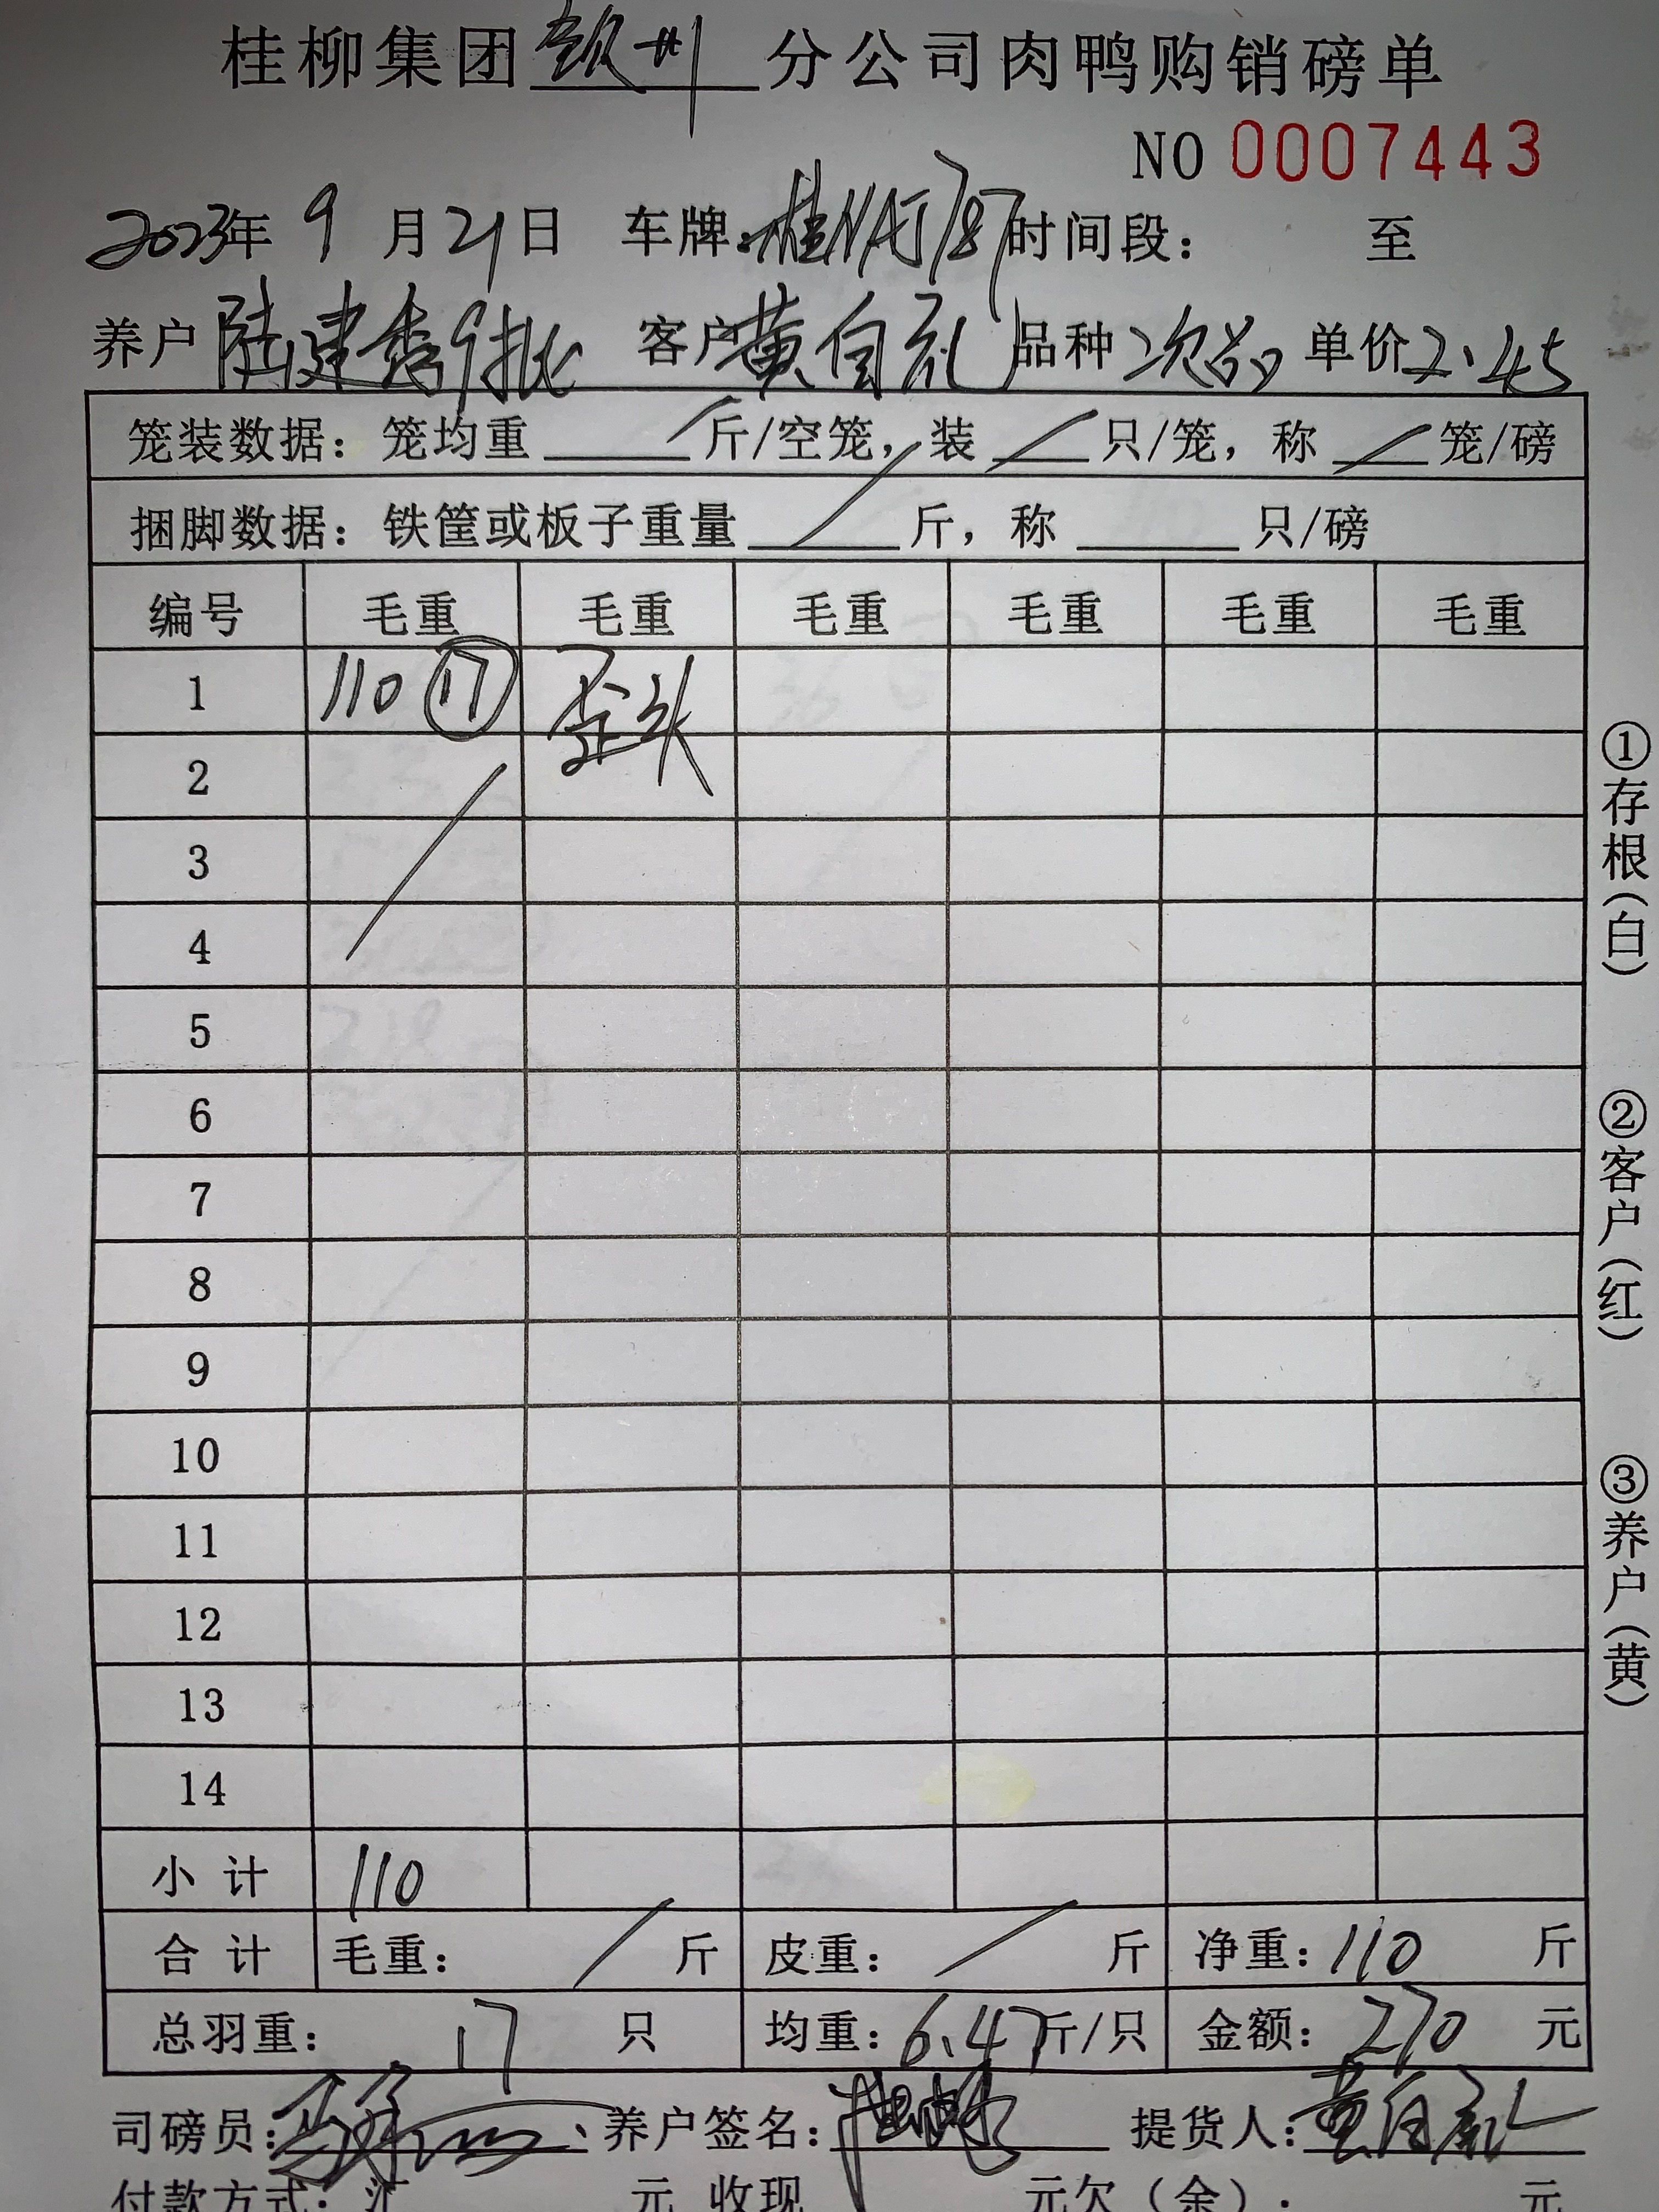 桂柳集团钦州分公司肉鸭购销磅单
NO 0007443
2023年 9 月 21 日 车牌：桂NAJ787 时间段： 至
养户 陆建秀9批 客户 黄自礼 品种 次品 单价 2.45
笼装数据：笼均重 / 斤/空笼，装 / 只/笼，称 / 笼/磅
捆脚数据：铁筐或板子重量 / 斤，称 只/磅
编号 毛重 毛重 毛重 毛重 毛重 毛重
1 110 ⑰ 歪头
2
3
4
5
6
7
8
9
10
11
12
13
14
小计 110
合计 毛重： / 斤 皮重： / 斤 净重：110 斤
总羽重： 17 只 均重：6.47斤/只 金额：270 元
司磅员： 养户签名： 提货人：黄自礼
付款方式：汇 元 收现 元欠（余）： 元
①存根（白）
②客户（红）
③养户（黄）